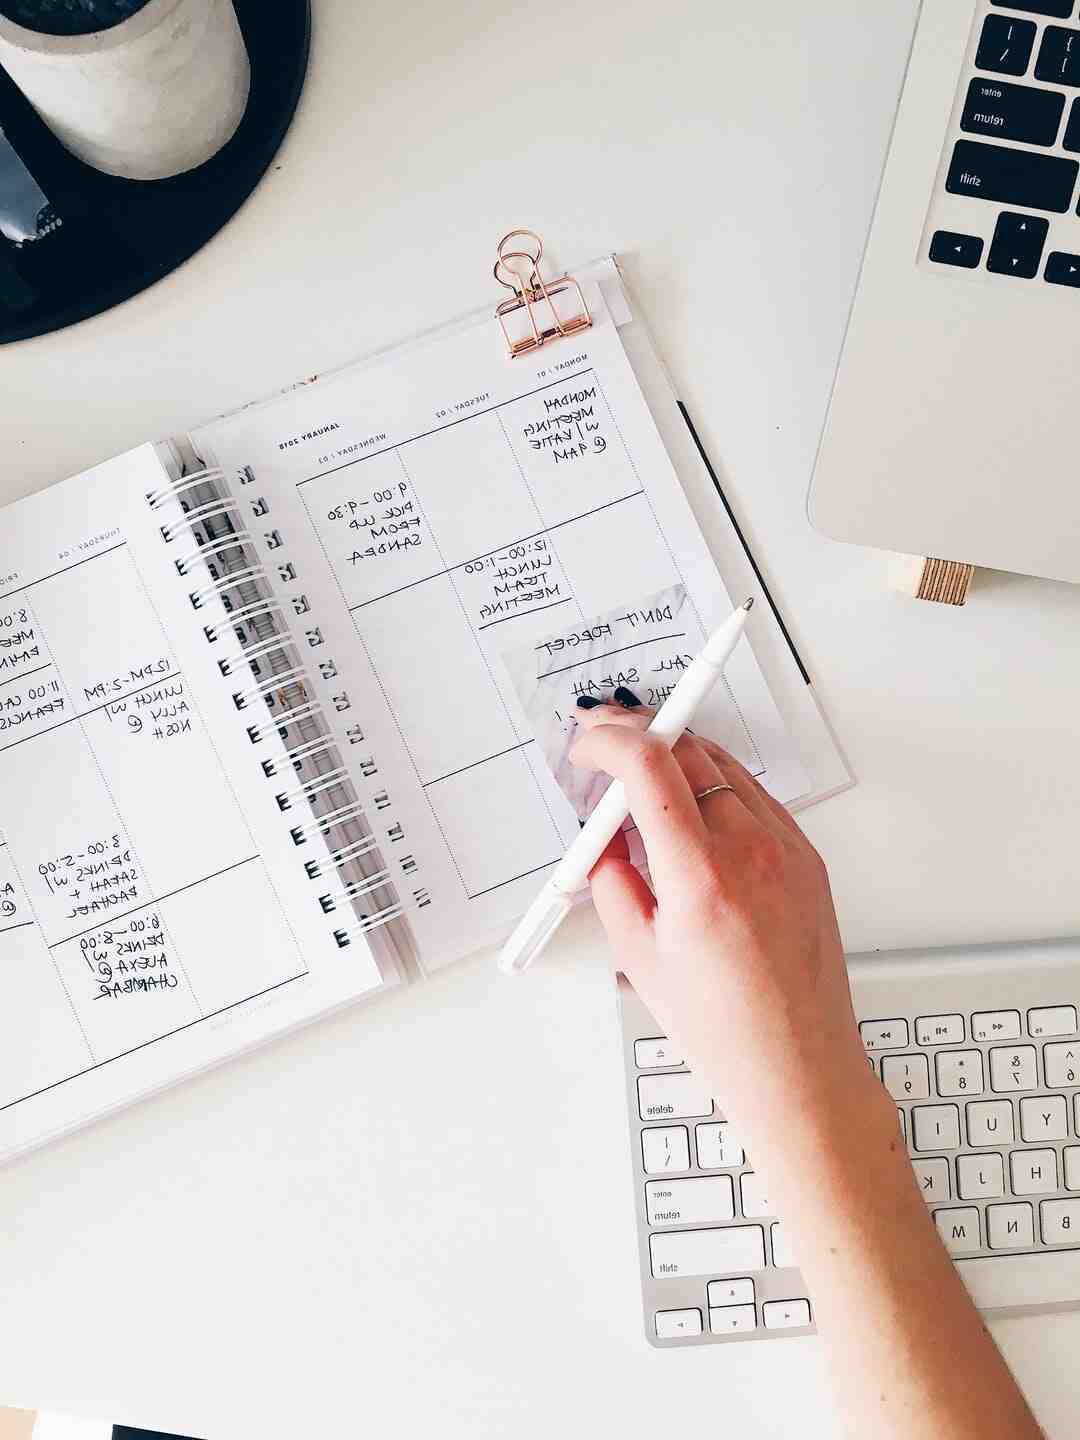 JANUARY 2018
MONDAY / 01
MONDAY
MEETING
W/ KATIE
@ 9AM
TUESDAY / 02
12:00-1:00
LUNCH
TEAM
MEETING
WEDNESDAY / 03
9:00-9:30
PICK UP
FROM
SANDRA
DON'T FORGET
CALL
SARAH
THURSDAY / 04
12PM-2:PM
LUNCH W/
ALLY @
NOSH
8:00
11:00
FRANCIS
3:00-5:00
DRINKS W/
SARAH +
RACHAEL
6:00-8:00
DRINKS W/
ALEXA @
CHAMBAR
@
enter
return
shift
F9 F8 F7
delete
( 9 * 8 & 7 ^ 6
I U Y
enter
return
K J H
shift
M N B